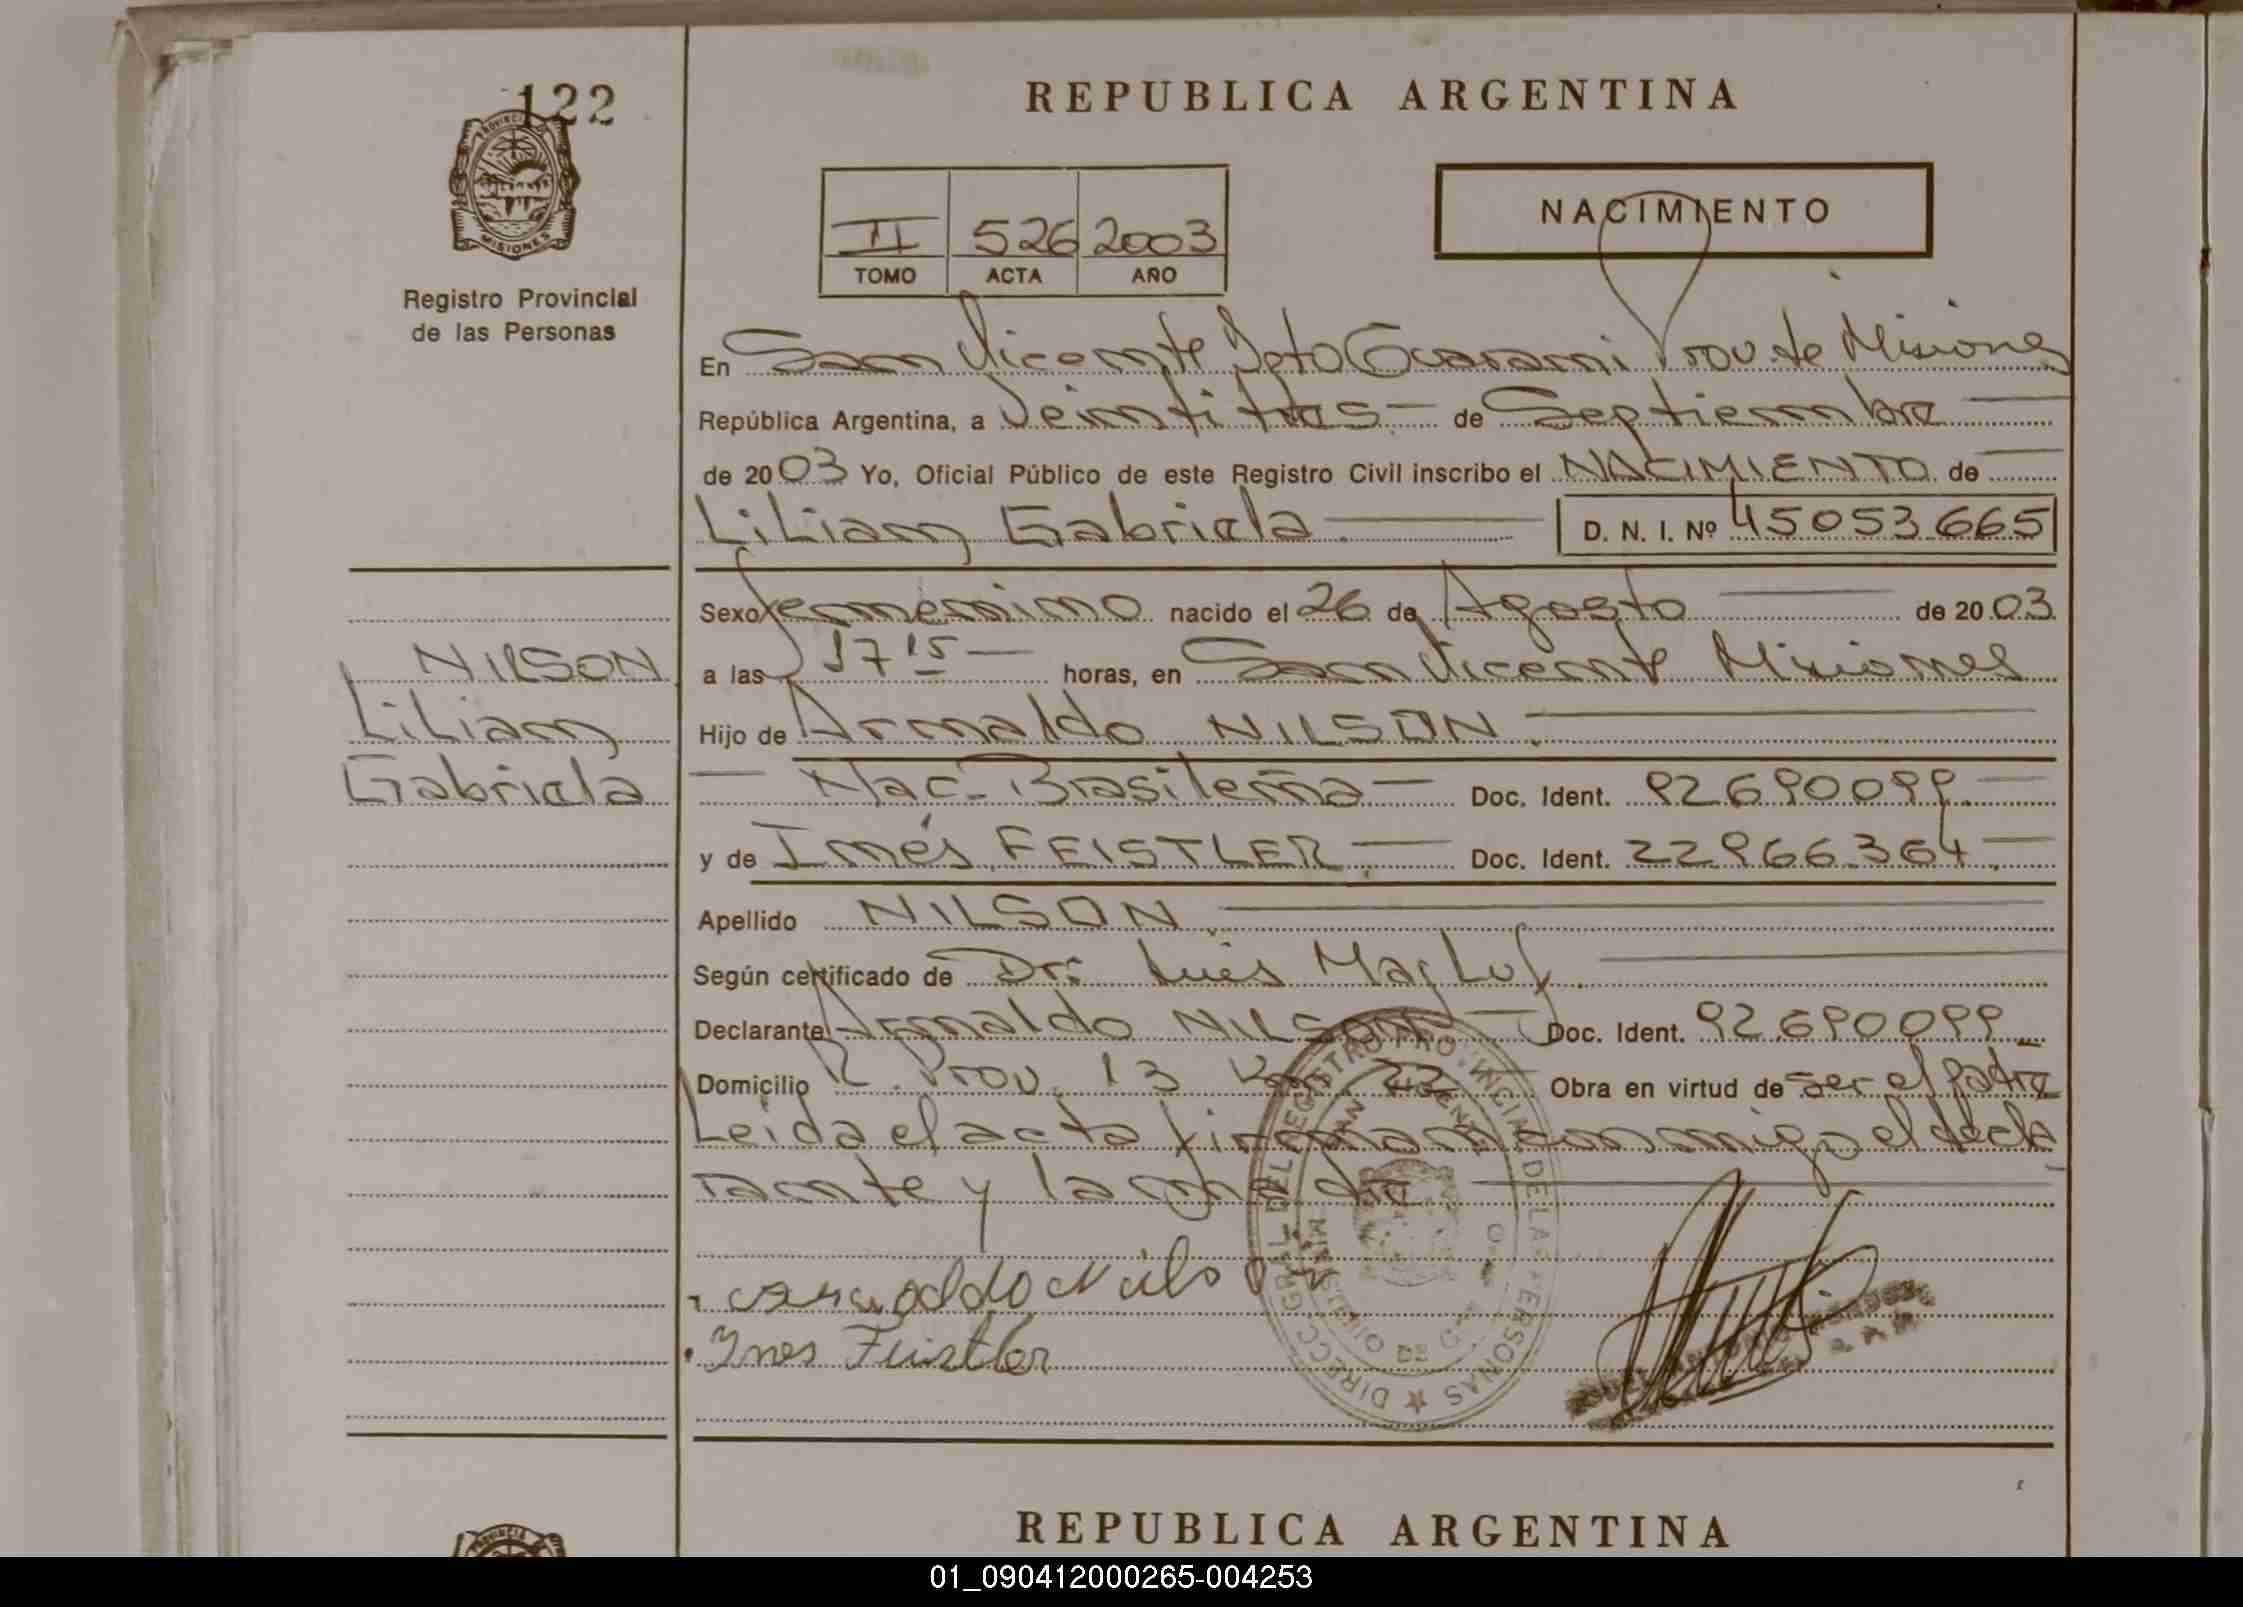 122
PROVINCIA DE
MISIONES
Registro Provincial
de las Personas
REPUBLICA ARGENTINA
II 526 2003
TOMO ACTA AÑO
NACIMIENTO
En San Vicente Dpto Guarani Prov. de Misiones
República Argentina, a Veintitres — de Septiembre —
de 2003 Yo, Oficial Público de este Registro Civil inscribo el NACIMIENTO de —
Lilian Gabriela — D. N. I. Nº 45053665
Sexo femenino nacido el 26 de Agosto — de 2003
a las 17 15 — horas, en San Vicente Misiones
Hijo de Arnaldo NILSON. —
— Nac. Brasileña — Doc. Ident. 92690099. —
y de Inés FEISTLER. — Doc. Ident. 22966364. —
Apellido NILSON. —
Según certificado de Dr. Luis —
Declarante Arnaldo NILSON — Doc. Ident. 92.690099 —
Domicilio R. Prov. 13 Km 22 — Obra en virtud de ser el padre
Leida el acta firman conmigo el decla
rante y la madre —
NILSON
Lilian
Gabriela
Arnoldo Nilson
Ines Feistler
DIRECC. GRAL. DEL REGISTRO PROVINCIAL DE LAS PERSONAS
REPUBLICA ARGENTINA
01_090412000265-004253